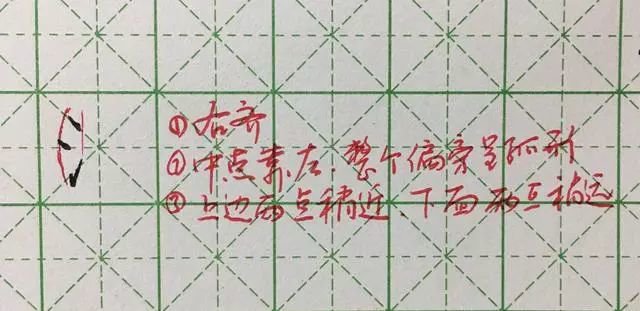 ①右齐
②中点靠左，整个偏旁呈弧形
③上边两点稍近，下面两点稍远